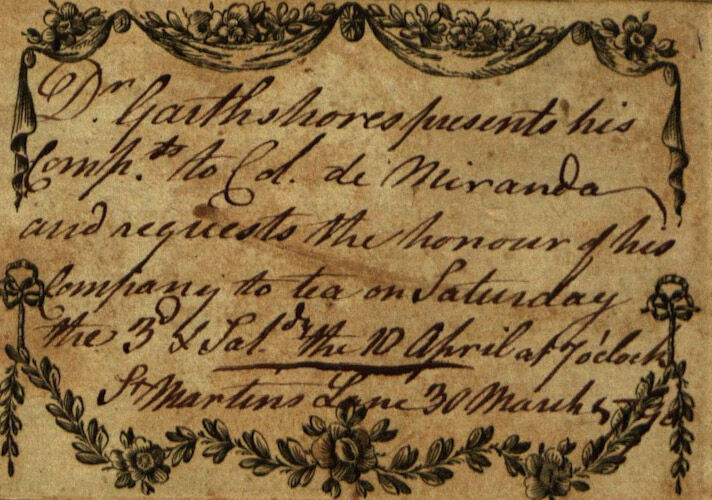 Dr. Garthshores presents his
Comp.ts to Col. de Miranda
and requests the honour of his
Company to tea on Saturday
the 3d & Sat.dy the 10 April at 7 o'clock
St Martins Lane 30 March